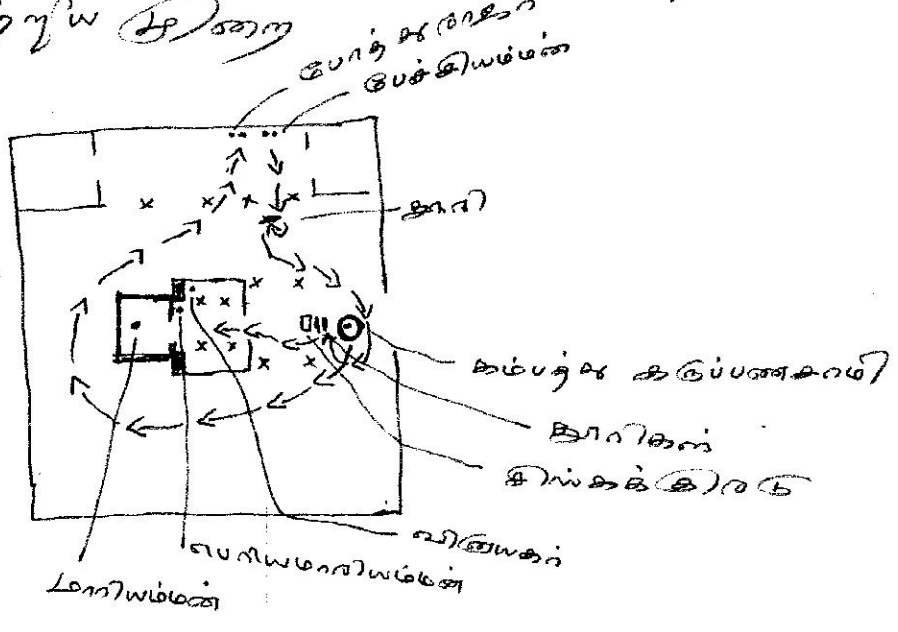 முறை
போத்துராஜா
பேச்சியம்மன்
தூரி
கம்பத்து கருப்பணசாமி
தூரிகள்
விநாயகர்
பெரியமாரியம்மன்
மாரியம்மன்